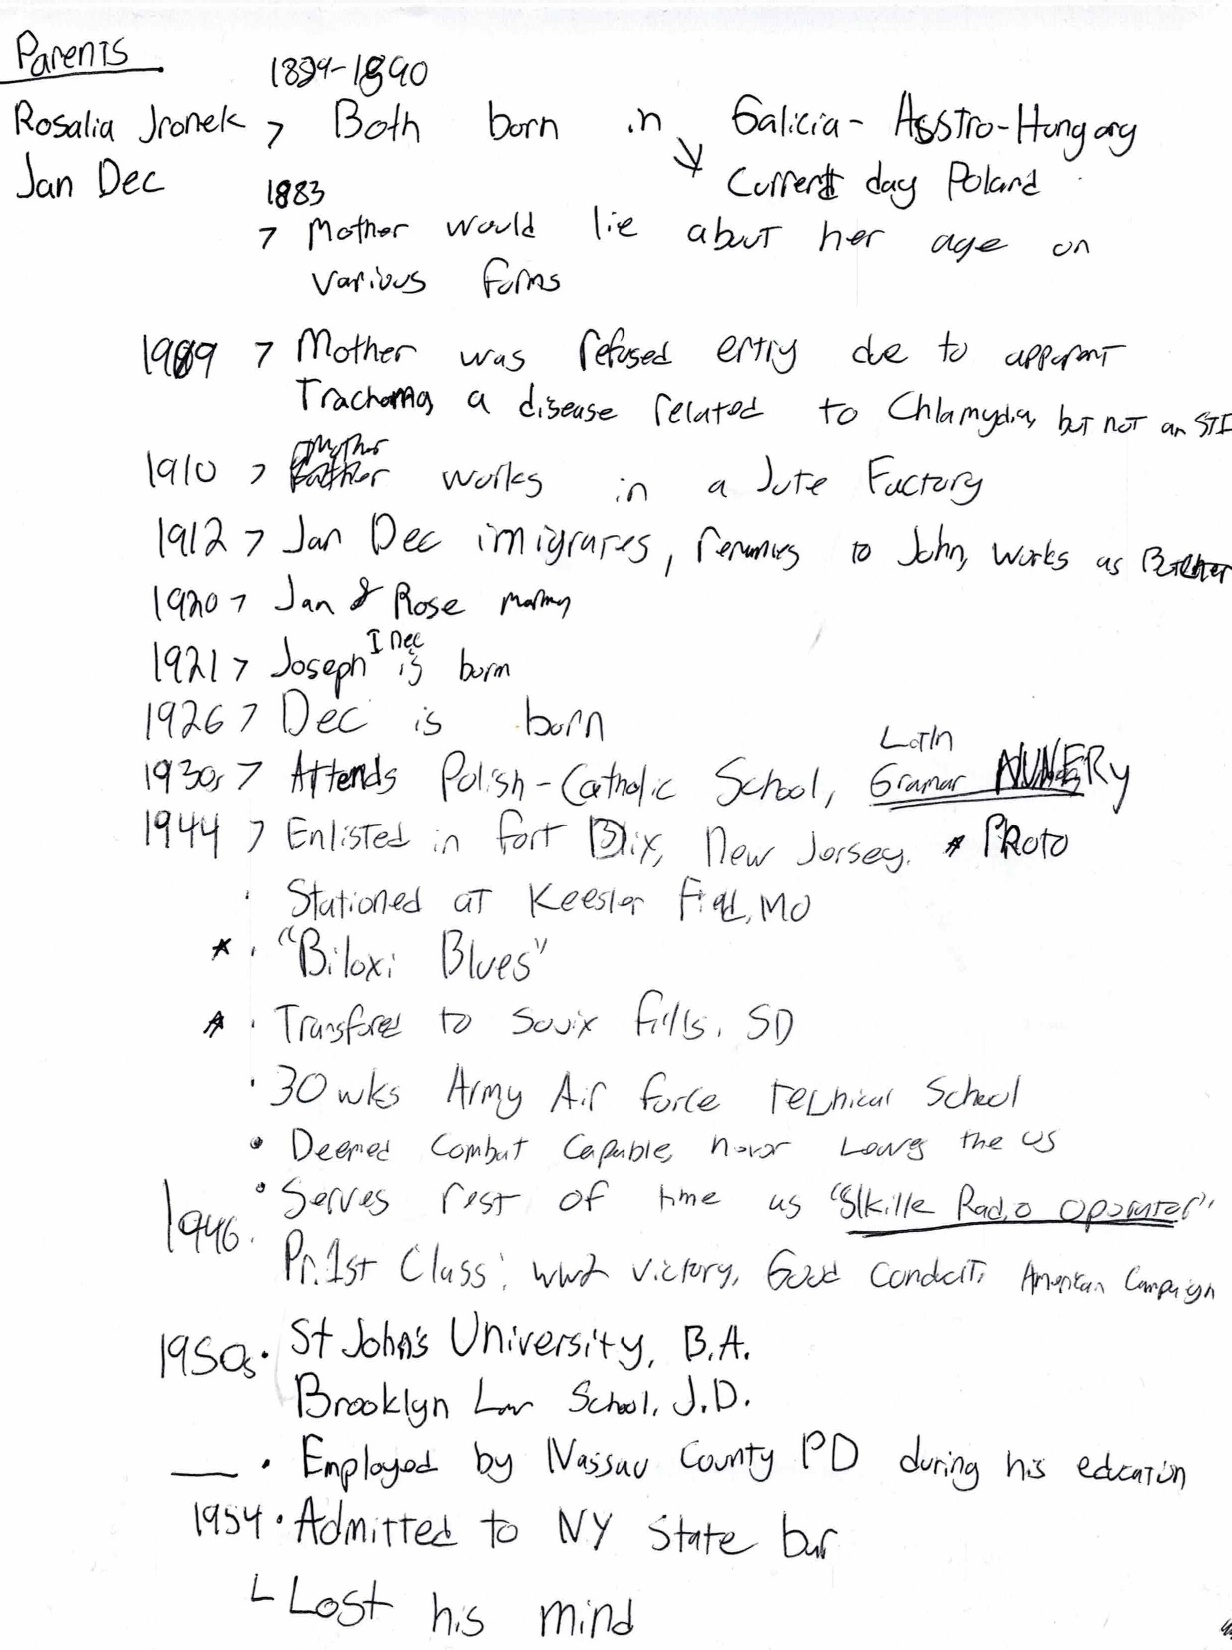 Parents
1889-1890
Rosalia Jronek > Both born in Galicia - Asstro-Hungary
Jan Dec Current day Poland
1883
> Mother would lie about her age on
various forms
1909 > Mother was refused entry due to apparent
Trachoma, a disease related to Chlamydia, but not an STI
1910 > Mother works in a Jute Factory
1912 > Jan Dec imigrates, renames to John, works as Butcher
1920 > Jan & Rose marry
1921 > Joseph I Dec is born
1926 > Dec is born
1930s > Attends Polish-Catholic School, Latin Gramar NUNERY
1944 > Enlisted in Fort Dix, New Jersey. * PHOTO
Stationed at Keesler Field, MO
* · "Biloxi Blues"
* · Transfored to Souix Falls, SD
· 30 wks Army Air Force Technical School
· Deemed Combat Capable, never Leaves the US
· Serves rest of time as "Slkille Radio Operator"
1946. Pr. 1st Class: ww2 victory, Good Conduct, American Campaign
1950s · St John's University, B.A.
Brooklyn Law School, J.D.
— · Employed by Nassau County PD during his education
1954 · Admitted to NY State bar
└ Lost his mind